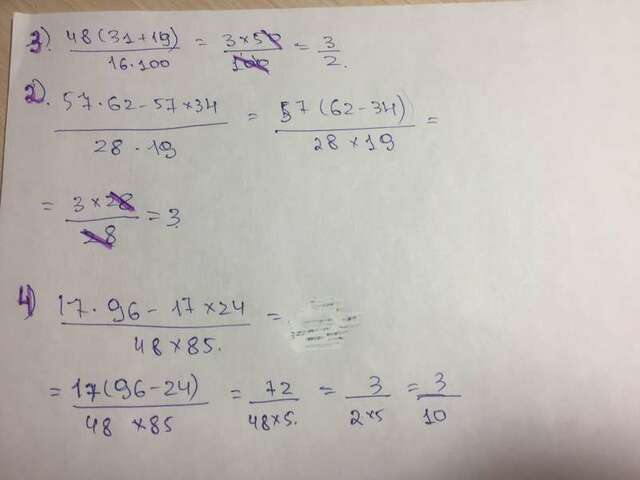 3). 48(31+19) / 16·100 = 3×50 / 100 = 3 / 2.
2). 57·62-57×34 / 28·19 = 57(62-34) / 28×19 =
= 3×28 / 28 = 3
4) 17·96-17×24 / 48×85. =
= 17(96-24) / 48×85 = 72 / 48×5. = 3 / 2×5 = 3 / 10